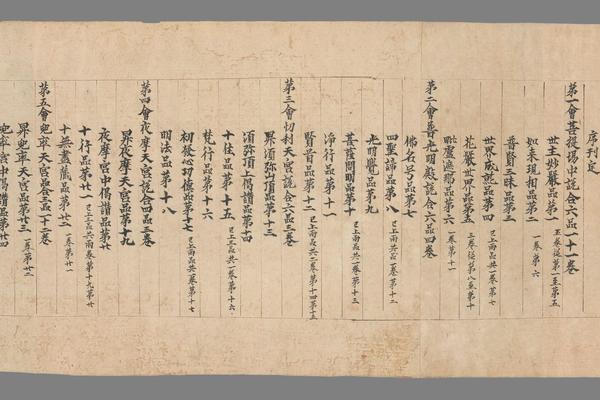 序判定
第一會菩提場中說合六品一十一卷
世主妙嚴品第一 五卷從第一至第五
如來現相品第二 一卷第六
普賢三昧品第三
世界成就品第四 已上兩品共一卷第七
花嚴世界品第五 三卷從第八至第十
毗盧遮那品第六 一卷第十一
第二會普光明殿說合六品四卷
佛名号品第七
四聖諦品第八 已上兩品共一卷第十二
光明覺品第九
菩薩問明品第十 已上兩品共一卷第十三
淨行品第十一
賢首品第十二 已上兩品共二卷第十四第十五
第三會忉利天宮說合六品三卷
昇須弥山頂品第十三
須弥頂上偈讚品第十四
十住品第十五 已上三品共一卷第十六
梵行品第十六
初發心功德品第十七 已上兩品共一卷第十七
明法品第十八
第四會夜摩天宮說合四品三卷
昇夜摩天宮品第十九
夜摩宮中偈讚品第廿
十行品第廿一 已上三品共兩卷第十九第廿
十無盡藏品第廿二 一卷第廿一
第五會兜率天宮品合三品十二卷
昇兜率天宮品第廿三 一卷第廿二
兜率宮中偈讚品第廿四